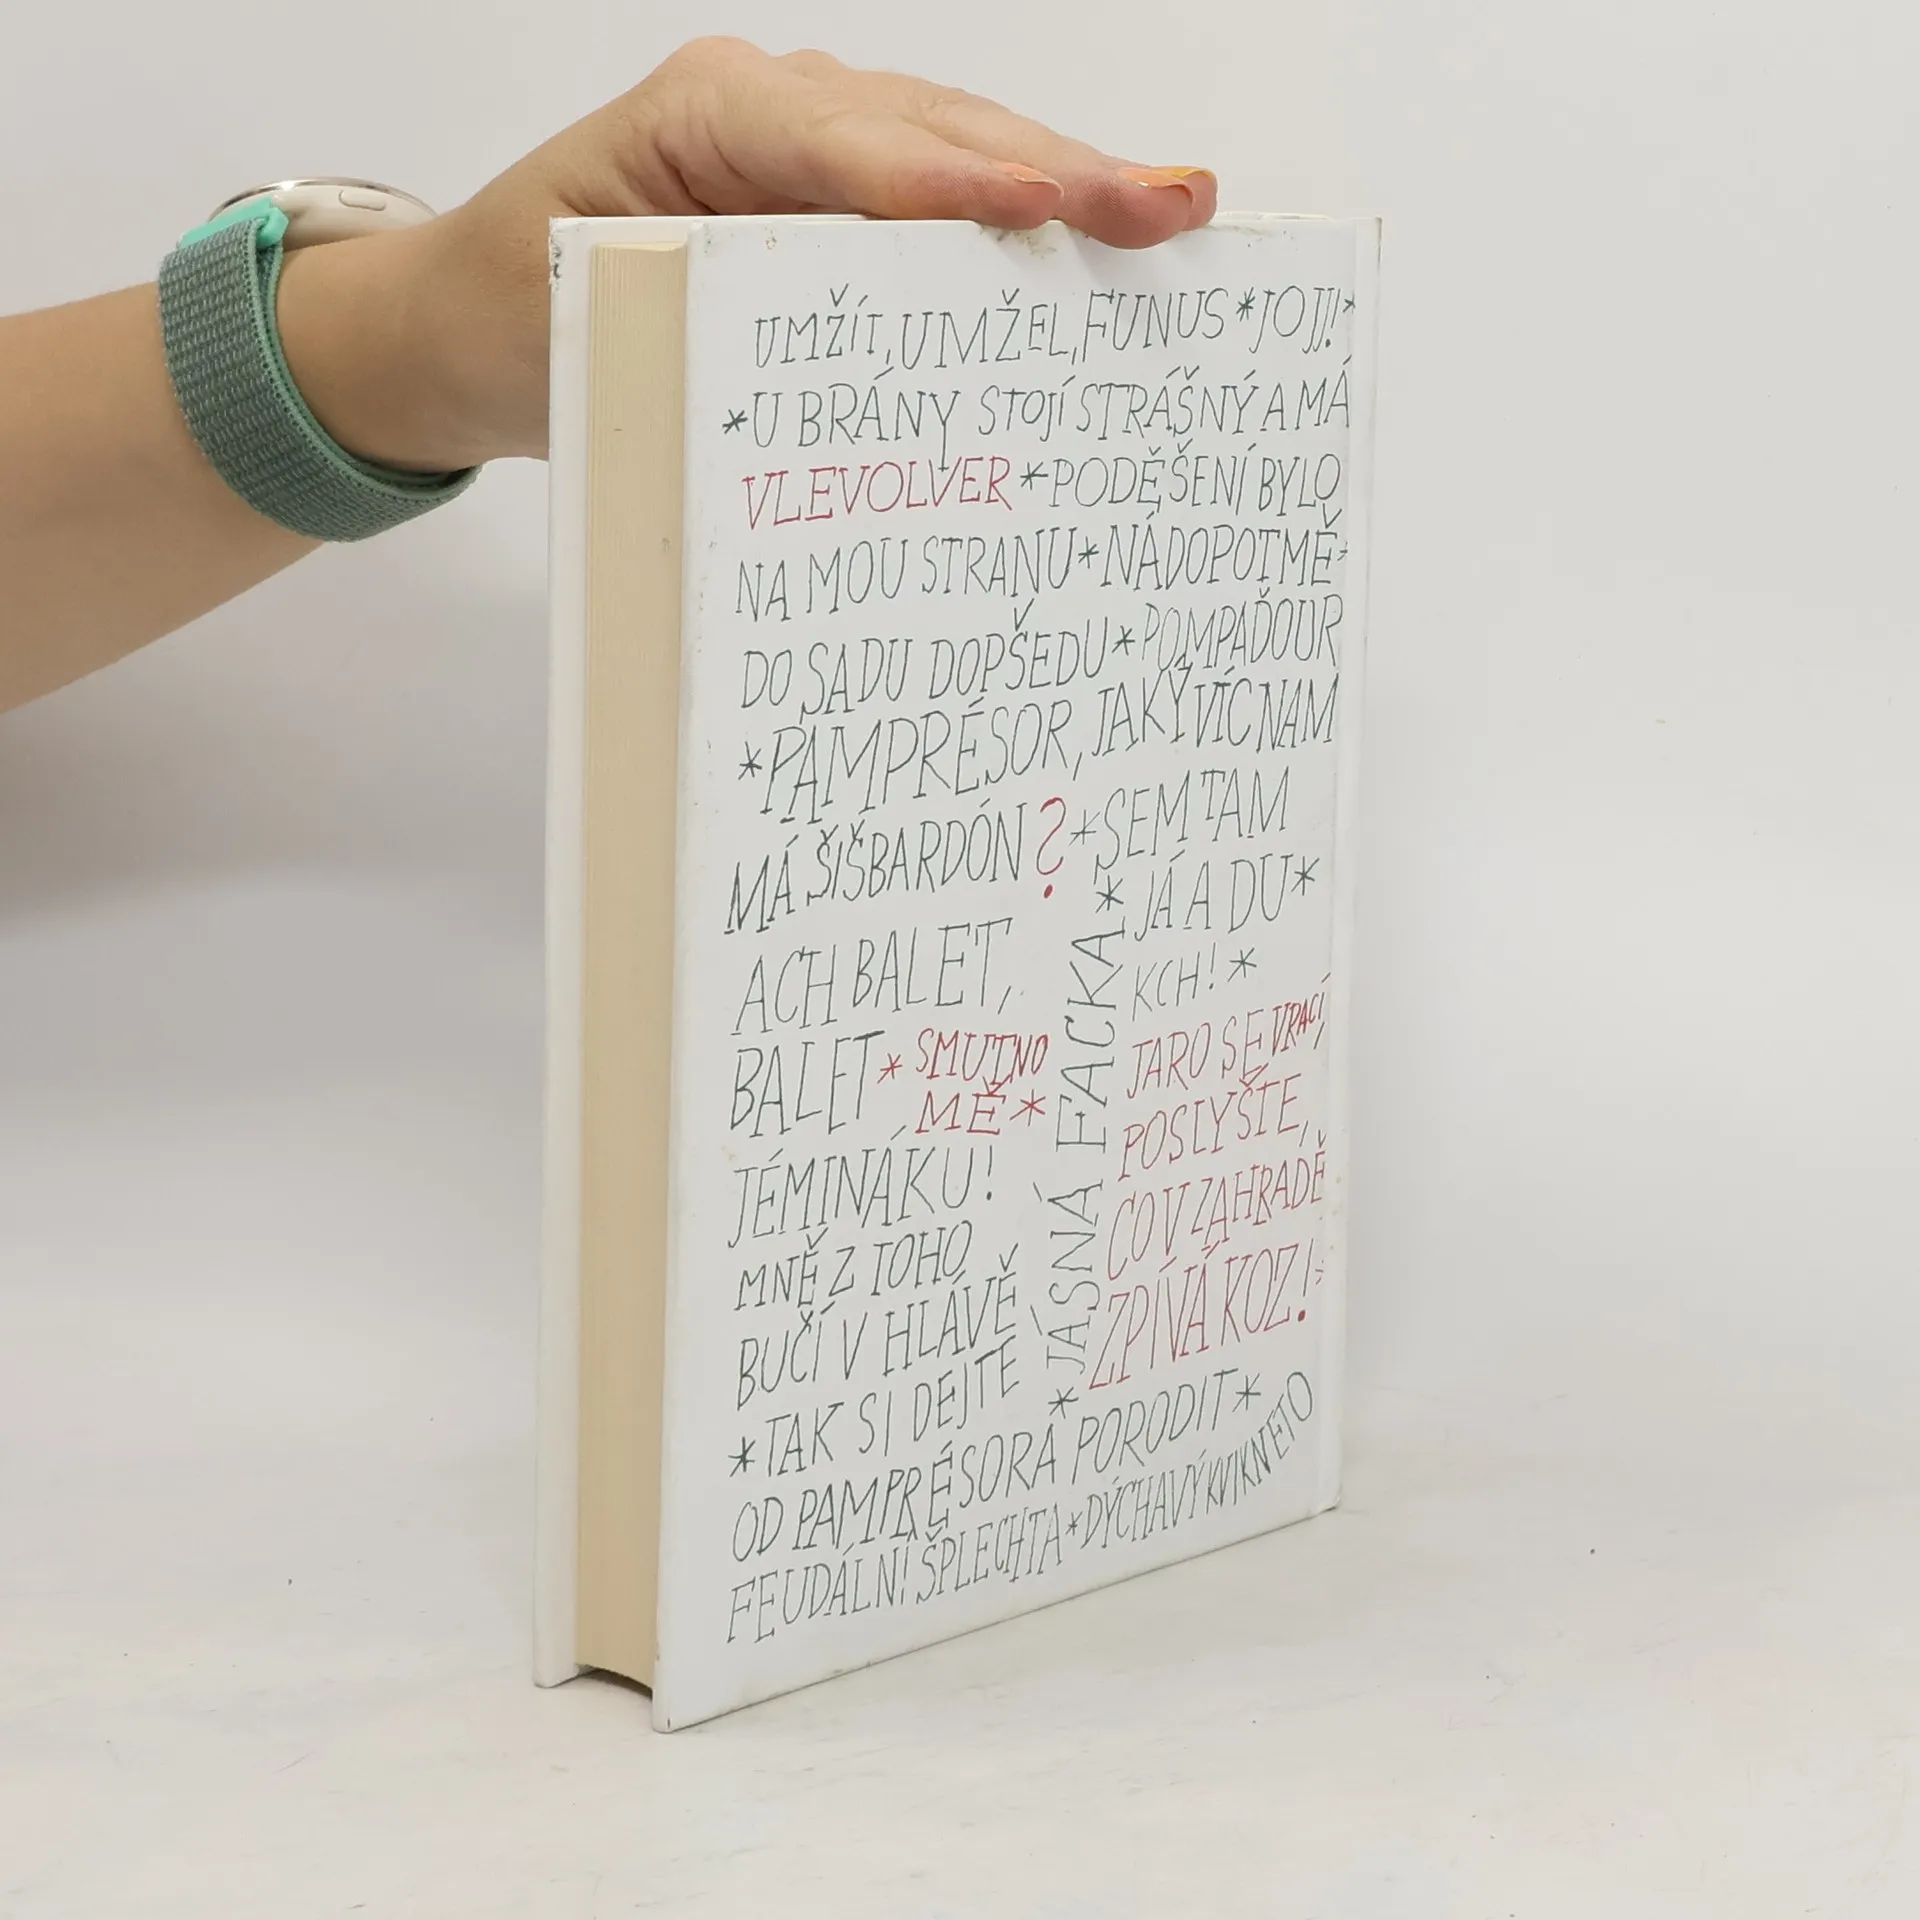 UMŽÍT, UMŽEL, FUNUS * JOJJ! *
* U BRÁNY STOJÍ STRÁŠNÝ A MÁ
VLEVOLVER * PODĚŠENÍ BYLO
NA MOU STRANU * NÁDOPOTMĚ *
DO SADU DOPŠEDU * POMPAĎOUR
* PAMPRÉSOR, JAKÝ VÍC NAM
MÁ ŠIŠBARDÓN? * SEM TAM
JÁ A DU *
KCH! *
ACH BALET,
BALET * SMUTNO
MĚ *
JÉMINÁKU!
MNĚ Z TOHO
BUČÍ V HLÁVĚ
* JÁSNÁ FACKA *
JARO SE VRACÍ,
POSLYŠTE,
CO V ZAHRADĚ
ZPÍVÁ KOZ! *
* TAK SI DEJTE
OD PAMPRÉSORA PORODIT *
FEUDÁLNÍ ŠPLECHTA * DÝCHAVÝ KVIKNĚTO